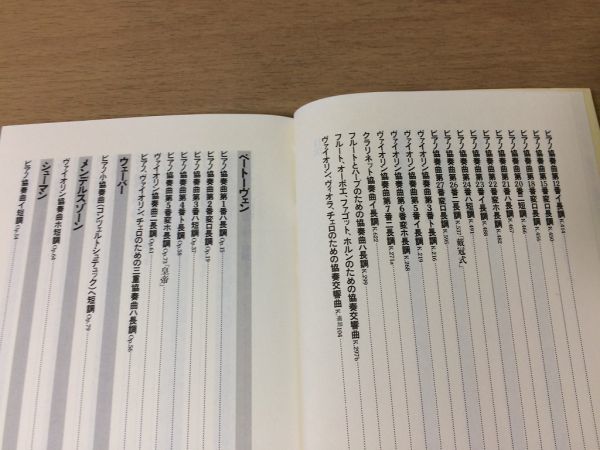 ピアノ協奏曲第12番イ長調 K.414
ピアノ協奏曲第15番変ロ長調 K.450
ピアノ協奏曲第18番変ロ長調 K.456
ピアノ協奏曲第20番ニ短調 K.466
ピアノ協奏曲第21番ハ長調 K.467
ピアノ協奏曲第22番変ホ長調 K.482
ピアノ協奏曲第23番イ長調 K.488
ピアノ協奏曲第24番ハ短調 K.491
ピアノ協奏曲第26番ニ長調 K.537「戴冠式」
ピアノ協奏曲第27番変ロ長調 K.595
ヴァイオリン協奏曲第3番ト長調 K.216
ヴァイオリン協奏曲第5番イ長調 K.219
ヴァイオリン協奏曲第6番変ホ長調 K.268
ヴァイオリン協奏曲第7番ニ長調 K.271a
クラリネット協奏曲イ長調 K.622
フルートとハープのための協奏曲ハ長調 K.299
フルート、オーボエ、ファゴット、ホルンのための協奏交響曲 K.297b
ヴァイオリン、ヴィオラ、チェロのための協奏交響曲 K.追加104
ベートーヴェン
ピアノ協奏曲第1番ハ長調 Op.15
ピアノ協奏曲第2番変ロ長調 Op.19
ピアノ協奏曲第3番ハ短調 Op.37
ピアノ協奏曲第4番ト長調 Op.58
ピアノ協奏曲第5番変ホ長調 Op.73「皇帝」
ヴァイオリン協奏曲ニ長調 Op.61
ピアノ、ヴァイオリン、チェロのための三重協奏曲ハ長調 Op.56
ウェーバー
ピアノ小協奏曲(コンツェルトシュテュック)ヘ短調 Op.79
メンデルスゾーン
ヴァイオリン協奏曲ホ短調 Op.64
シューマン
ピアノ協奏曲イ短調 Op.54